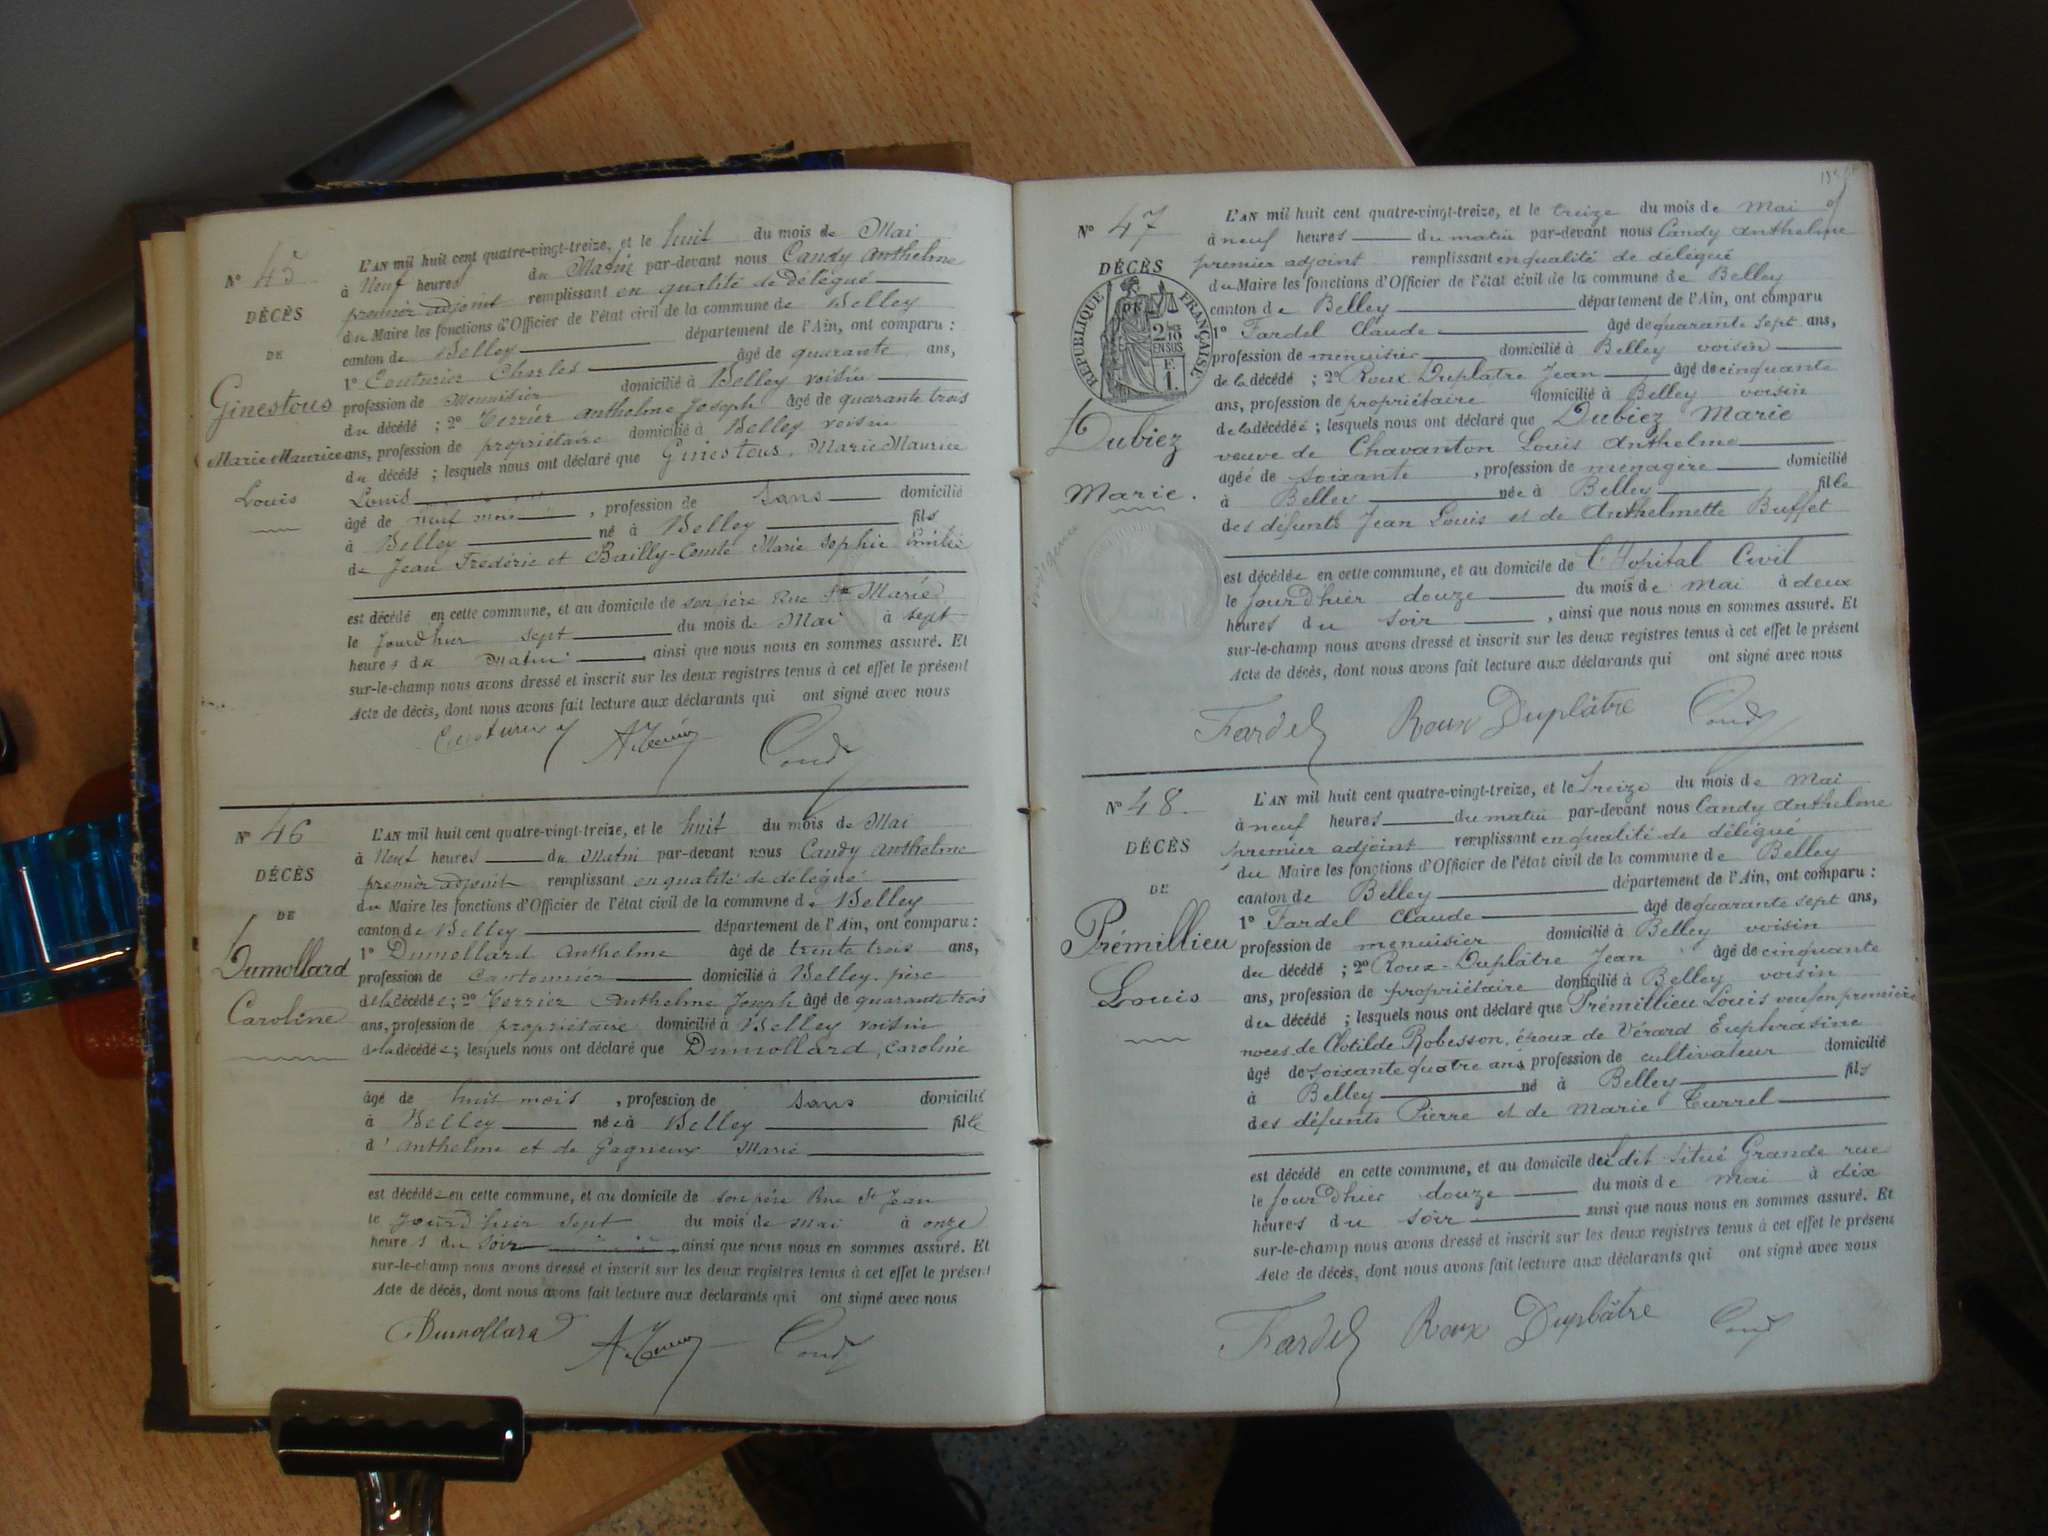 N° 45
DÉCÈS
DE
Ginestous
Marie Maurice
Louis
L'AN mil huit cent quatre-vingt-treize, et le huit du mois de Mai
à Neuf heures du Matin par-devant nous Candy Anthelme
premier adjoint remplissant en qualité de délégué
du Maire les fonctions d'Officier de l'état civil de la commune de Belley
canton de Belley département de l'Ain, ont comparu :
1° Couturier Charles âgé de quarante ans,
profession de Menuisier domicilié à Belley voisin
du décédé ; 2° Terrier Anthelme Joseph âgé de quarante trois
ans, profession de propriétaire domicilié à Belley voisin
du décédé ; lesquels nous ont déclaré que Ginestous, Marie Maurice
Louis
âgé de neuf mois , profession de sans domicilié
à Belley né à Belley fils
de Jean Frédéric et Bailly-Comte Marie Sophie Emilie
est décédé en cette commune, et au domicile de son père Rue Ste Marie
le jourd'hier sept du mois de Mai à sept
heures du Matin , ainsi que nous nous en sommes assuré. Et
sur-le-champ nous avons dressé et inscrit sur les deux registres tenus à cet effet le présent
Acte de décès, dont nous avons fait lecture aux déclarants qui ont signé avec nous
Couturier A. Terrier Candy
N° 46
DÉCÈS
DE
Dumollard
Caroline
L'AN mil huit cent quatre-vingt-treize, et le huit du mois de Mai
à Neuf heures du Matin par-devant nous Candy Anthelme
premier adjoint remplissant en qualité de délégué
du Maire les fonctions d'Officier de l'état civil de la commune de Belley
canton de Belley département de l'Ain, ont comparu :
1° Dumollard Anthelme âgé de trente trois ans,
profession de Cantonnier domicilié à Belley. père
de la décédée ; 2° Terrier Anthelme Joseph âgé de quarante trois
ans, profession de propriétaire domicilié à Belley voisin
de la décédée ; lesquels nous ont déclaré que Dumollard, Caroline
âgé de huit mois , profession de sans domicilié
à Belley née à Belley fille
d'Anthelme et de Gagneux Marie
est décédée en cette commune, et au domicile de son père Rue St Jean
le jourd'hier sept du mois de Mai à onze
heures du soir , ainsi que nous nous en sommes assuré. Et
sur-le-champ nous avons dressé et inscrit sur les deux registres tenus à cet effet le présent
Acte de décès, dont nous avons fait lecture aux déclarants qui ont signé avec nous
Dumollard A. Terrier Candy
N° 47
DÉCÈS
DE
RÉPUBLIQUE FRANÇAISE
EN SUS
Dubiez
Marie.
L'AN mil huit cent quatre-vingt-treize, et le treize du mois de Mai
à neuf heures du matin par-devant nous Candy Anthelme
premier adjoint remplissant en qualité de délégué
du Maire les fonctions d'Officier de l'état civil de la commune de Belley
canton de Belley département de l'Ain, ont comparu
1° Fardel Claude âgé de quarante sept ans,
profession de menuisier domicilié à Belley voisin
de la décédé ; 2° Roux-Duplatre Jean âgé de cinquante
ans, profession de propriétaire domicilié à Belley voisin
de la décédée ; lesquels nous ont déclaré que Dubiez Marie
veuve de Chavanton Louis Anthelme
agéé de soixante , profession de ménagère domicilié
à Belley née à Belley fille
des défunts Jean Louis et de Anthelmette Buffet
est décédée en cette commune, et au domicile de l'Hopital Civil
le jourd'hier douze du mois de mai à deux
heures du soir , ainsi que nous nous en sommes assuré. Et
sur-le-champ nous avons dressé et inscrit sur les deux registres tenus à cet effet le présent
Acte de décès, dont nous avons fait lecture aux déclarants qui ont signé avec nous
Fardel Roux Duplâtre Candy
N° 48
DÉCÈS
DE
Prémillieu
Louis
L'AN mil huit cent quatre-vingt-treize, et le treize du mois de Mai
à neuf heures du matin par-devant nous Candy Anthelme
premier adjoint remplissant en qualité de délégué
du Maire les fonctions d'Officier de l'état civil de la commune de Belley
canton de Belley département de l'Ain, ont comparu :
1° Fardel Claude âgé de quarante sept ans,
profession de menuisier domicilié à Belley voisin
du décédé ; 2° Roux-Duplâtre Jean âgé de cinquante
ans, profession de propriétaire domicilié à Belley voisin
du décédé ; lesquels nous ont déclaré que Prémillieu Louis veuf en première
noces de Clotilde Robesson, époux de Vérard Euphrasine
âgé de soixante quatre ans, profession de cultivateur domicilié
à Belley né à Belley fils
des défunts Pierre et de Marie Turrel
est décédé en cette commune, et au domicile du dit situé Grande rue
le jourd'hier douze du mois de mai à dix
heures du soir ainsi que nous nous en sommes assuré. Et
sur-le-champ nous avons dressé et inscrit sur les deux registres tenus à cet effet le présent
Acte de décès, dont nous avons fait lecture aux déclarants qui ont signé avec nous
Fardel Roux Duplâtre Candy